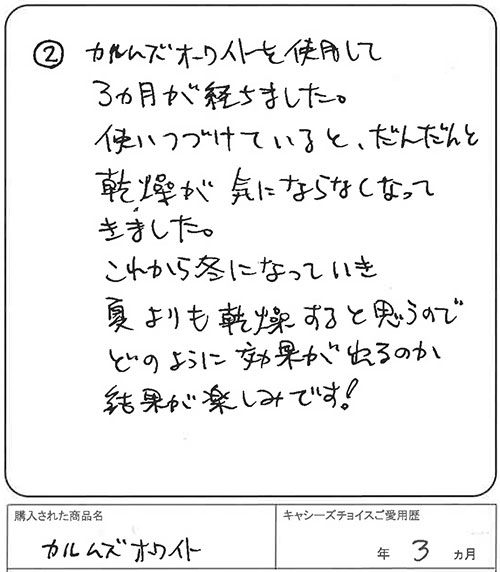 ② カルムズオーワイトを使用して
3ヵ月が経ちました。
使いつづけていると、だんだんと
乾燥が気にならなくなって
きました。
これから冬になっていき
夏よりも乾燥すると思うので
どのように効果が出るのか
結果が楽しみです!
購入された商品名
キャシーズチョイスご愛用歴
カルムズホワイト
年 3 ヵ月